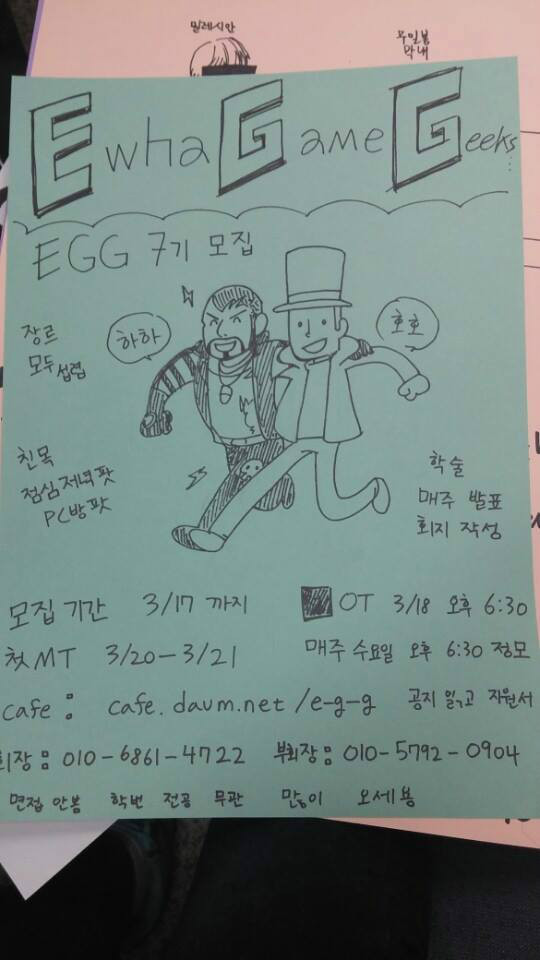 말레시안
무일봉
막내
Ewha Game Geeks...
EGG 7기 모집
장르
모두 섭렵
하하
호호
친목
점심저녁팟
PC방팟
학술
매주 발표
회지 작성
모집 기간 3/17 까지
OT 3/18 오후 6:30
첫MT 3/20-3/21
매주 수요일 오후 6:30 정모
cafe : cafe.daum.net/e-g-g 공지 읽고 지원서
회장 : 010-6861-4722 부회장 : 010-5792-0904
면접 안봄 학번 전공 무관 많이 오세용